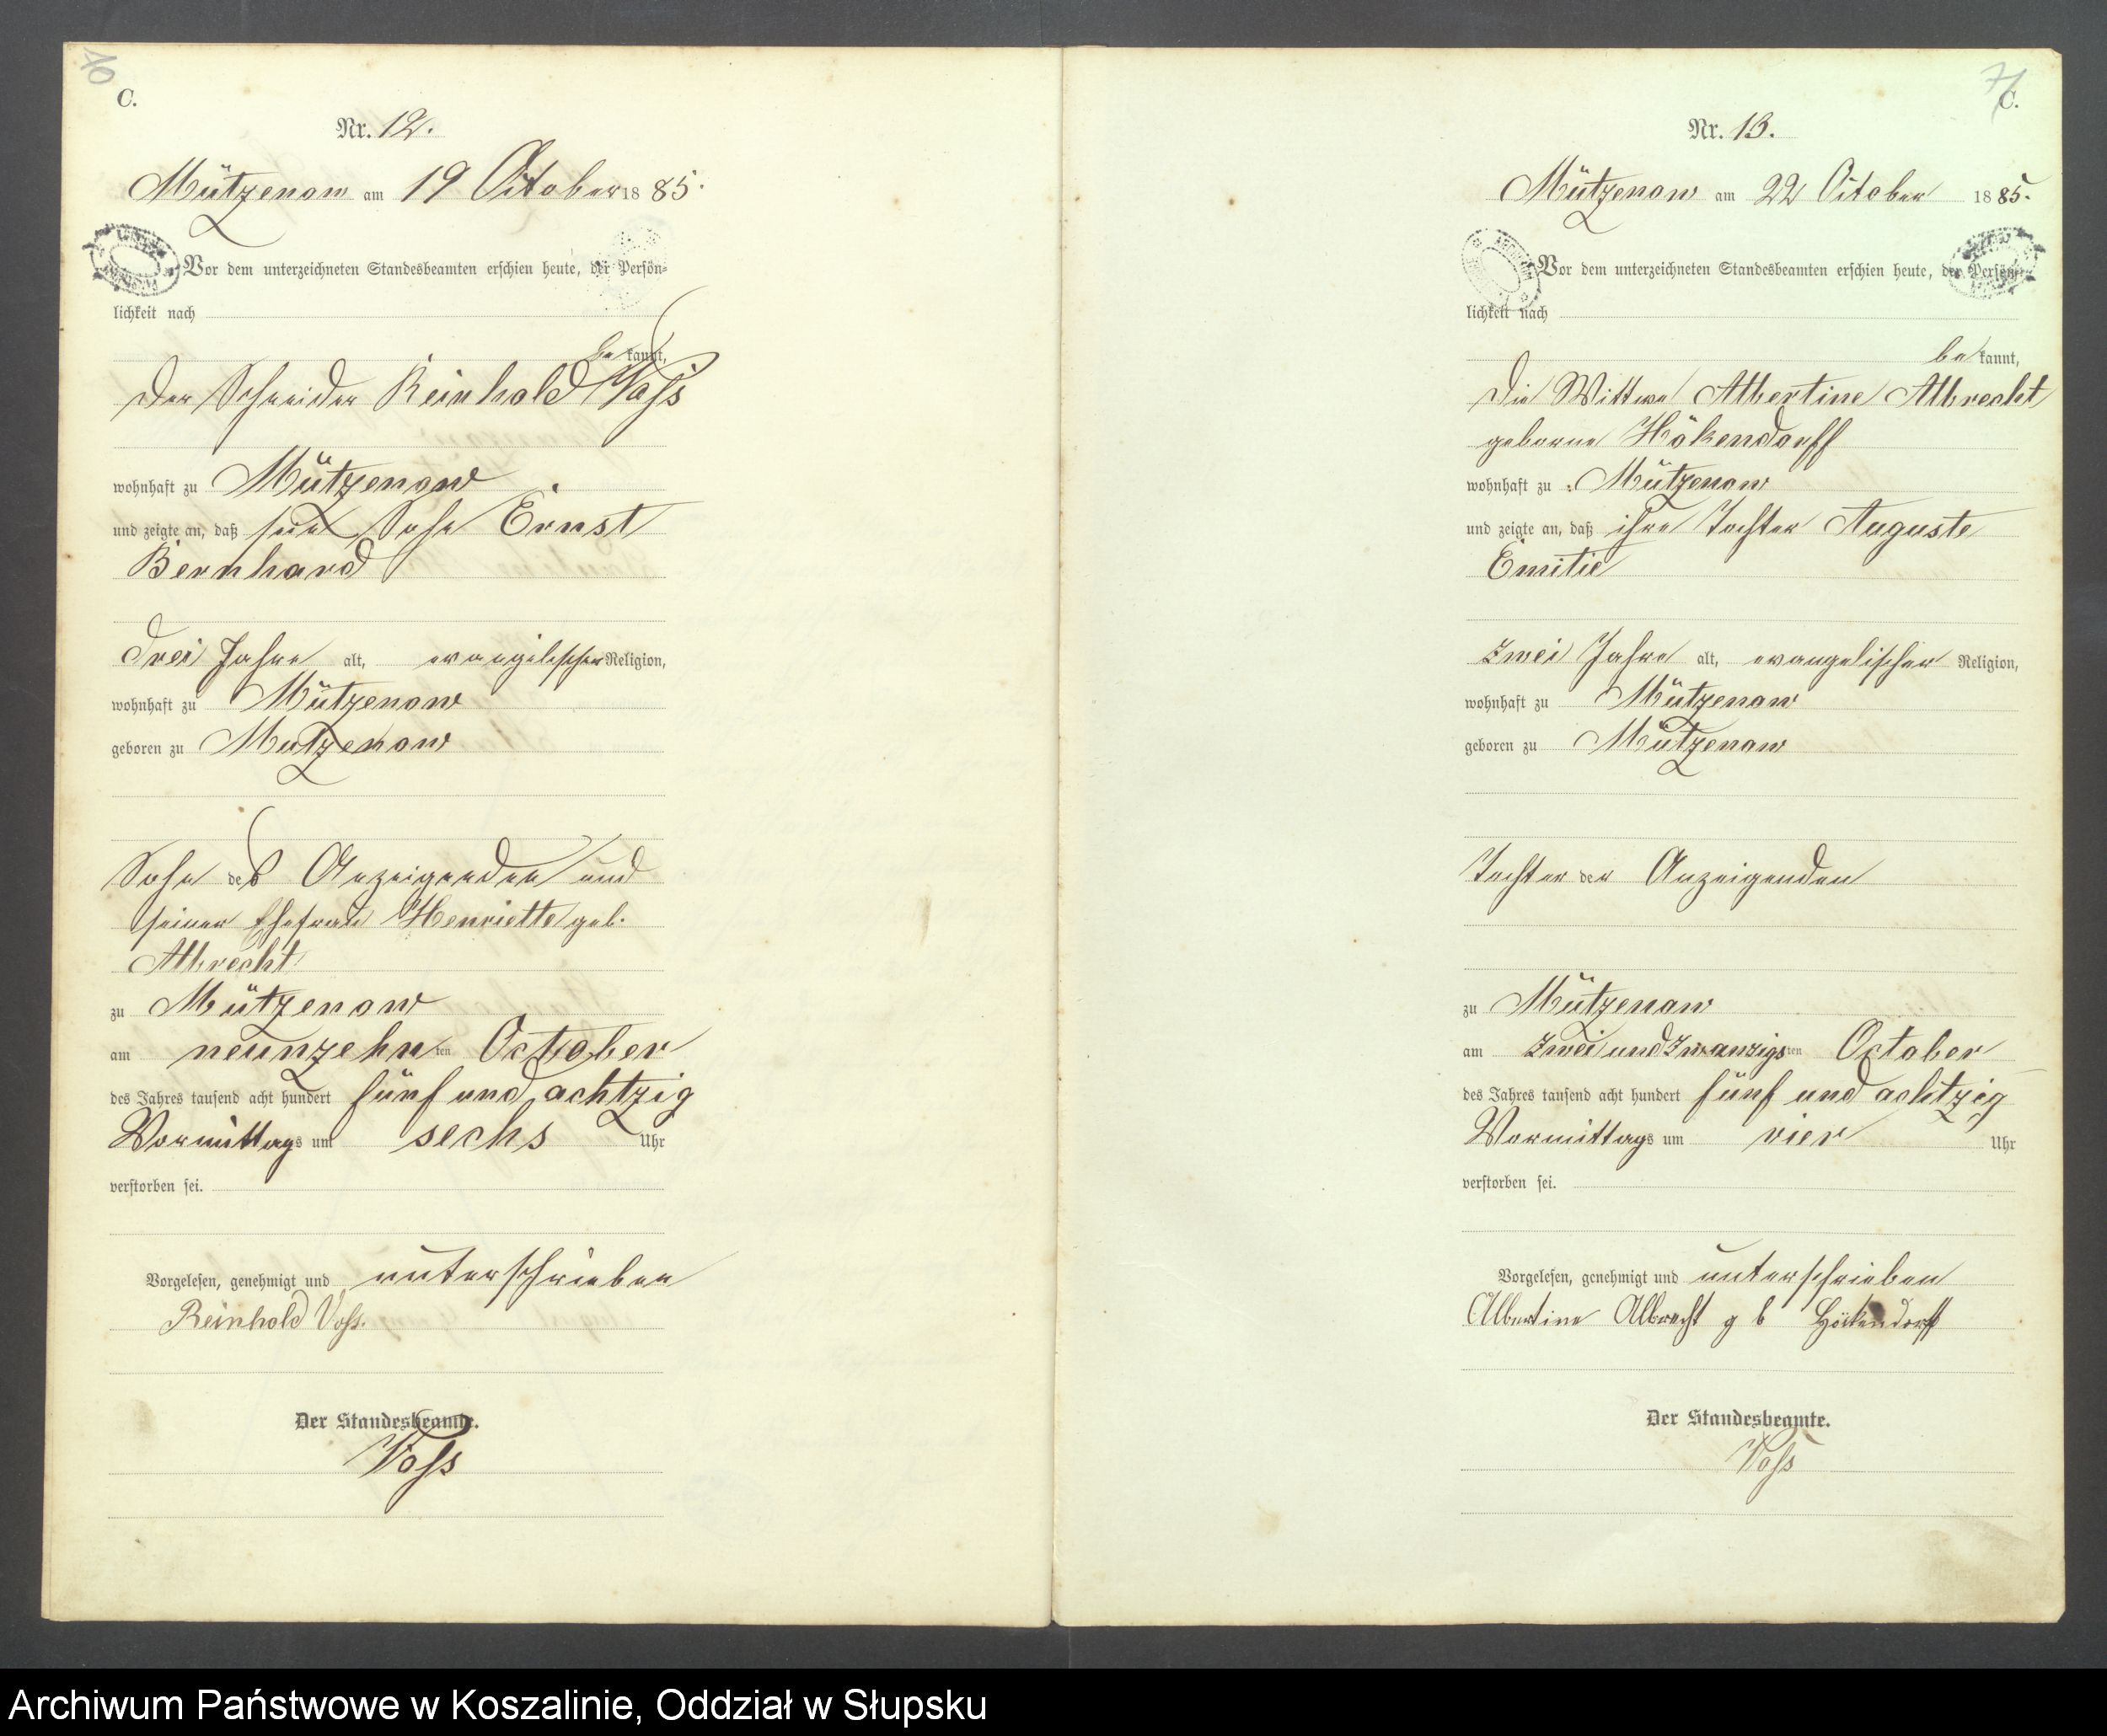 70
C.
Nr. 12.
Mützenow am 19 October 1885.
Vor dem unterzeichneten Standesbeamten erschien heute, der Persön-
lichkeit nach
be kannt,
der Schneider Reinhold Voss
wohnhaft zu Mützenow
und zeigte an, daß sein Sohn Ernst
Bernhard
drei Jahre alt, evangelischer Religion,
wohnhaft zu Mützenow
geboren zu Mützenow
Sohn des Anzeigenden und
seiner Ehefrau Henriette geb.
Albrecht
zu Mützenow
am neunzehn ten October
des Jahres tausend acht hundert fünf und achtzig
Vormittags um sechs Uhr
verstorben sei.
Vorgelesen, genehmigt und unterschrieben
Reinhold Voss.
Der Standesbeamte.
Voss
71
C.
Nr. 13.
Mützenow am 22 October 1885.
Vor dem unterzeichneten Standesbeamten erschien heute, der Persön-
lichkeit nach
be kannt,
die Wittwe Albertine Albrecht
geborne Hökendorff
wohnhaft zu Mützenow
und zeigte an, daß ihre Tochter Auguste
Emilie
zwei Jahre alt, evangelischer Religion,
wohnhaft zu Mützenow
geboren zu Mützenow
Tochter der Anzeigenden
zu Mützenow
am zwei und zwanzigsten October
des Jahres tausend acht hundert fünf und achtzig
Vormittags um vier Uhr
verstorben sei.
Vorgelesen, genehmigt und unterschrieben
Albertine Albrecht g b Hökendorff
Der Standesbeamte.
Voss
Archiwum Państwowe w Koszalinie, Oddział w Słupsku